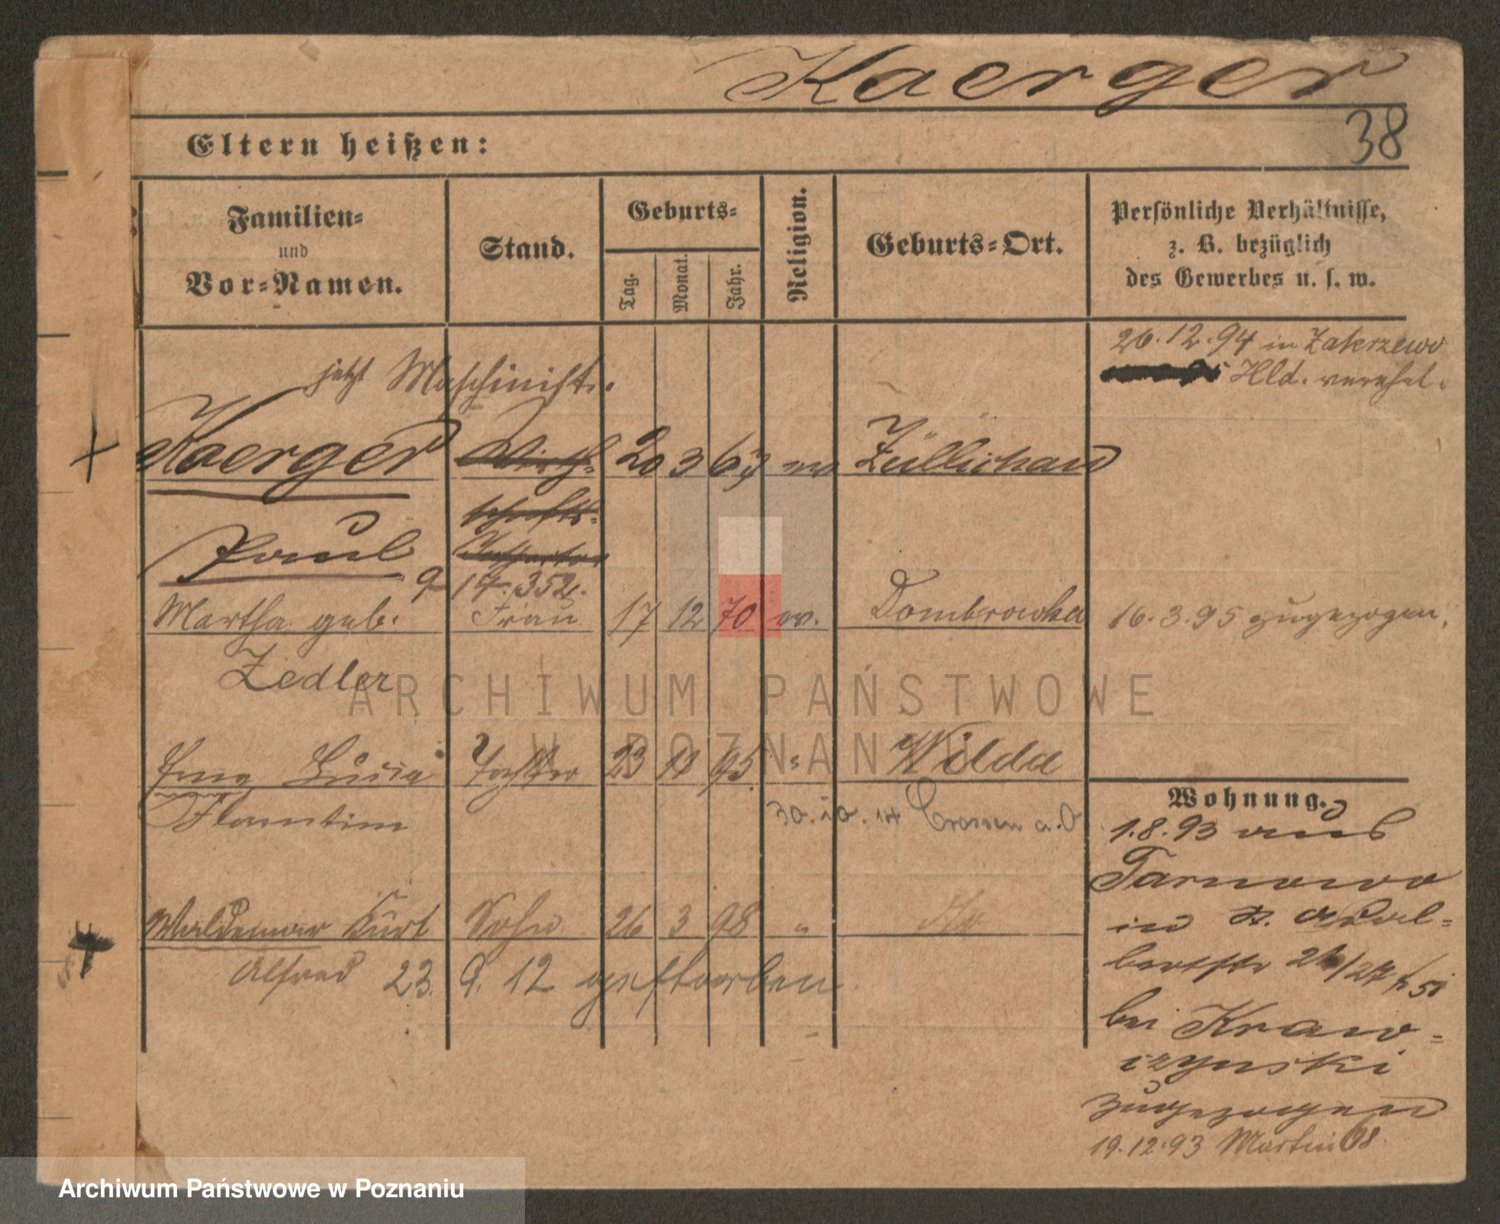 Kaerger
38
Eltern heißen:
Familien-
und
Vor-Namen.
Stand.
Geburts-
Tag.
Monat.
Jahr.
Religion.
Geburts-Ort.
Persönliche Verhältnisse,
z. B. bezüglich
des Gewerbes u. s. w.
26.12.94 in Zakrzewo
Hld. verehel.
jetzt Maschinist.
Kaerger Wirth- 20 3 63 ev Züllichau
schafts-
Paul Inspector
17.352.
Martha geb. Frau 17 12 70 ev. Dombrowka 16.3.95 zugezogen.
Zedler
ARCHIWUM PAŃSTWOWE
W POZNANIU
Erna Lucia Tochter 23 11 95 " Wilda
Florentine 30.10.14 Crossen a.O
Wohnung.
1.8.93 aus
Tarnowo
in
Waldemar Kurt Sohn 26 3 98 "
Alfred 23. 9. 12 gestorben.
bei Kraw-
czynski
zugezogen
19.12.93 Martin 68
Archiwum Państwowe w Poznaniu